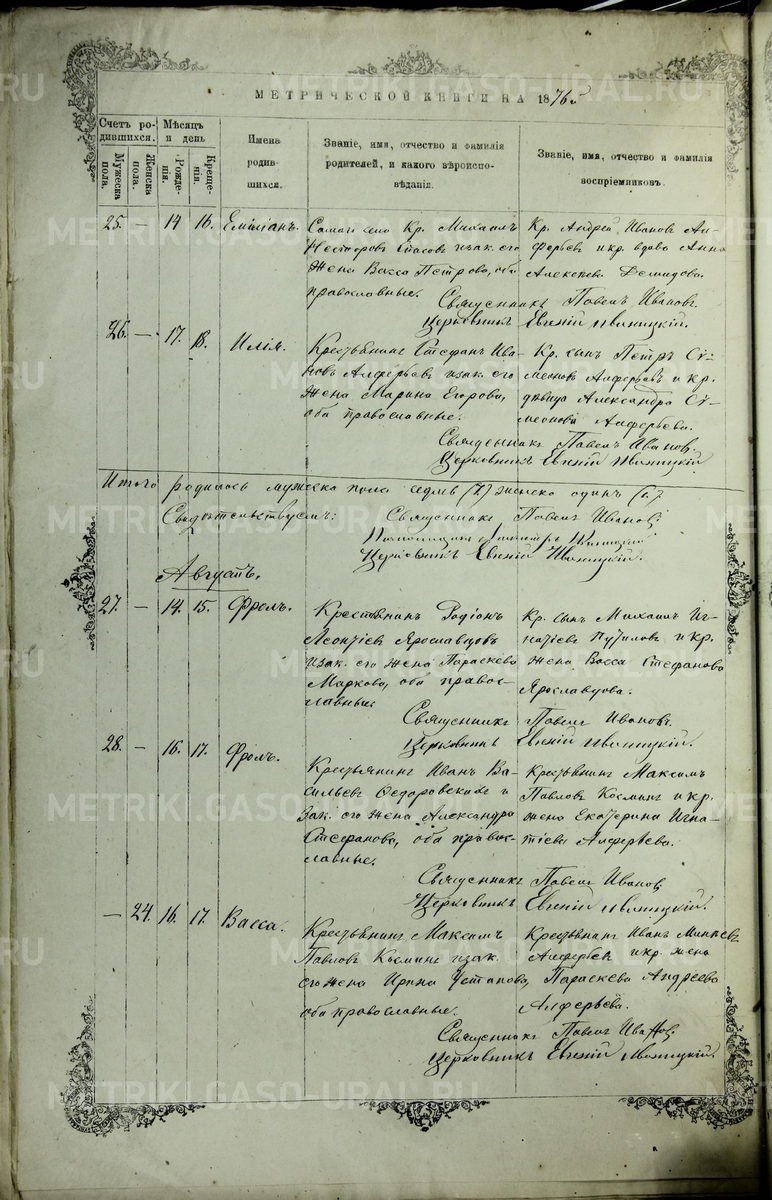 МЕТРИЧЕСКОЙ КНИГИ НА 1876й
Счетъ родившихся.
Мужеска пола.
Женска пола.
Мѣсяцъ и день
Рожденія.
Крещенія.
Имена родившихся.
Званіе, имя, отчество и фамилія родителей, и какого вѣроисповѣданія.
Званіе, имя, отчество и фамилія воспріемниковъ.
25. — 14 16. Емиліанъ.
Кр. Михаилъ
Несторовъ Власовъ и зак. его
жена Васса Петрова, оба
православные.
Кр. Андрей Ивановъ Алферьевъ и кр. вдова Анна
Алексѣева Демидова.
Священникъ Павелъ Ивановъ.
Церковникъ Евгеній
26. — 17. 18. Илія.
Крестьянинъ Стефанъ Ивановъ Алферьевъ и зак. его
жена Марина Егорова,
оба православные.
Кр. сынъ Петръ Симеоновъ Алферьевъ и кр.
дѣвица Александра Симеонова Алферьева.
Священникъ Павелъ Ивановъ.
Церковникъ Евгеній
Итого родилось мужеска пола седмь (7) женска одинъ (1.)
Свидѣтельствуемъ: Священникъ Павелъ Ивановъ
Церковникъ Евгеній
Августъ.
27. — 14. 15. Фролъ.
Крестьянинъ Родіонъ
Леонтіевъ Ярославцовъ
и зак. его жена Параскева
Маркова, оба православные.
Кр. сынъ Михаилъ Игнатіевъ Путиловъ и кр.
жена Васса Стефанова
Ярославцова.
Священникъ Павелъ Ивановъ.
Церковникъ Евгеній
28. — 16. 17. Фролъ.
Крестьянинъ Иванъ Васильевъ Ѳедоровскихъ и
зак. его жена Александра
Стефанова, оба православные.
Крестьянинъ Максимъ
Павловъ Косминъ и кр.
жена Екатерина Игнатіева Алферьева.
Священникъ Павелъ Ивановъ
Церковникъ Евгеній
— 24. 16. 17. Васса.
Крестьянинъ Максимъ
Павловъ Косминъ и зак.
его жена Ирина Устинова,
оба православные.
Крестьянинъ Иванъ Минѣевъ
Алферьевъ и кр. жена
Параскева Андреева
Алферьева.
Священникъ Павелъ Ивановъ.
Церковникъ Евгеній
METRIKI.GASO-URAL.RU